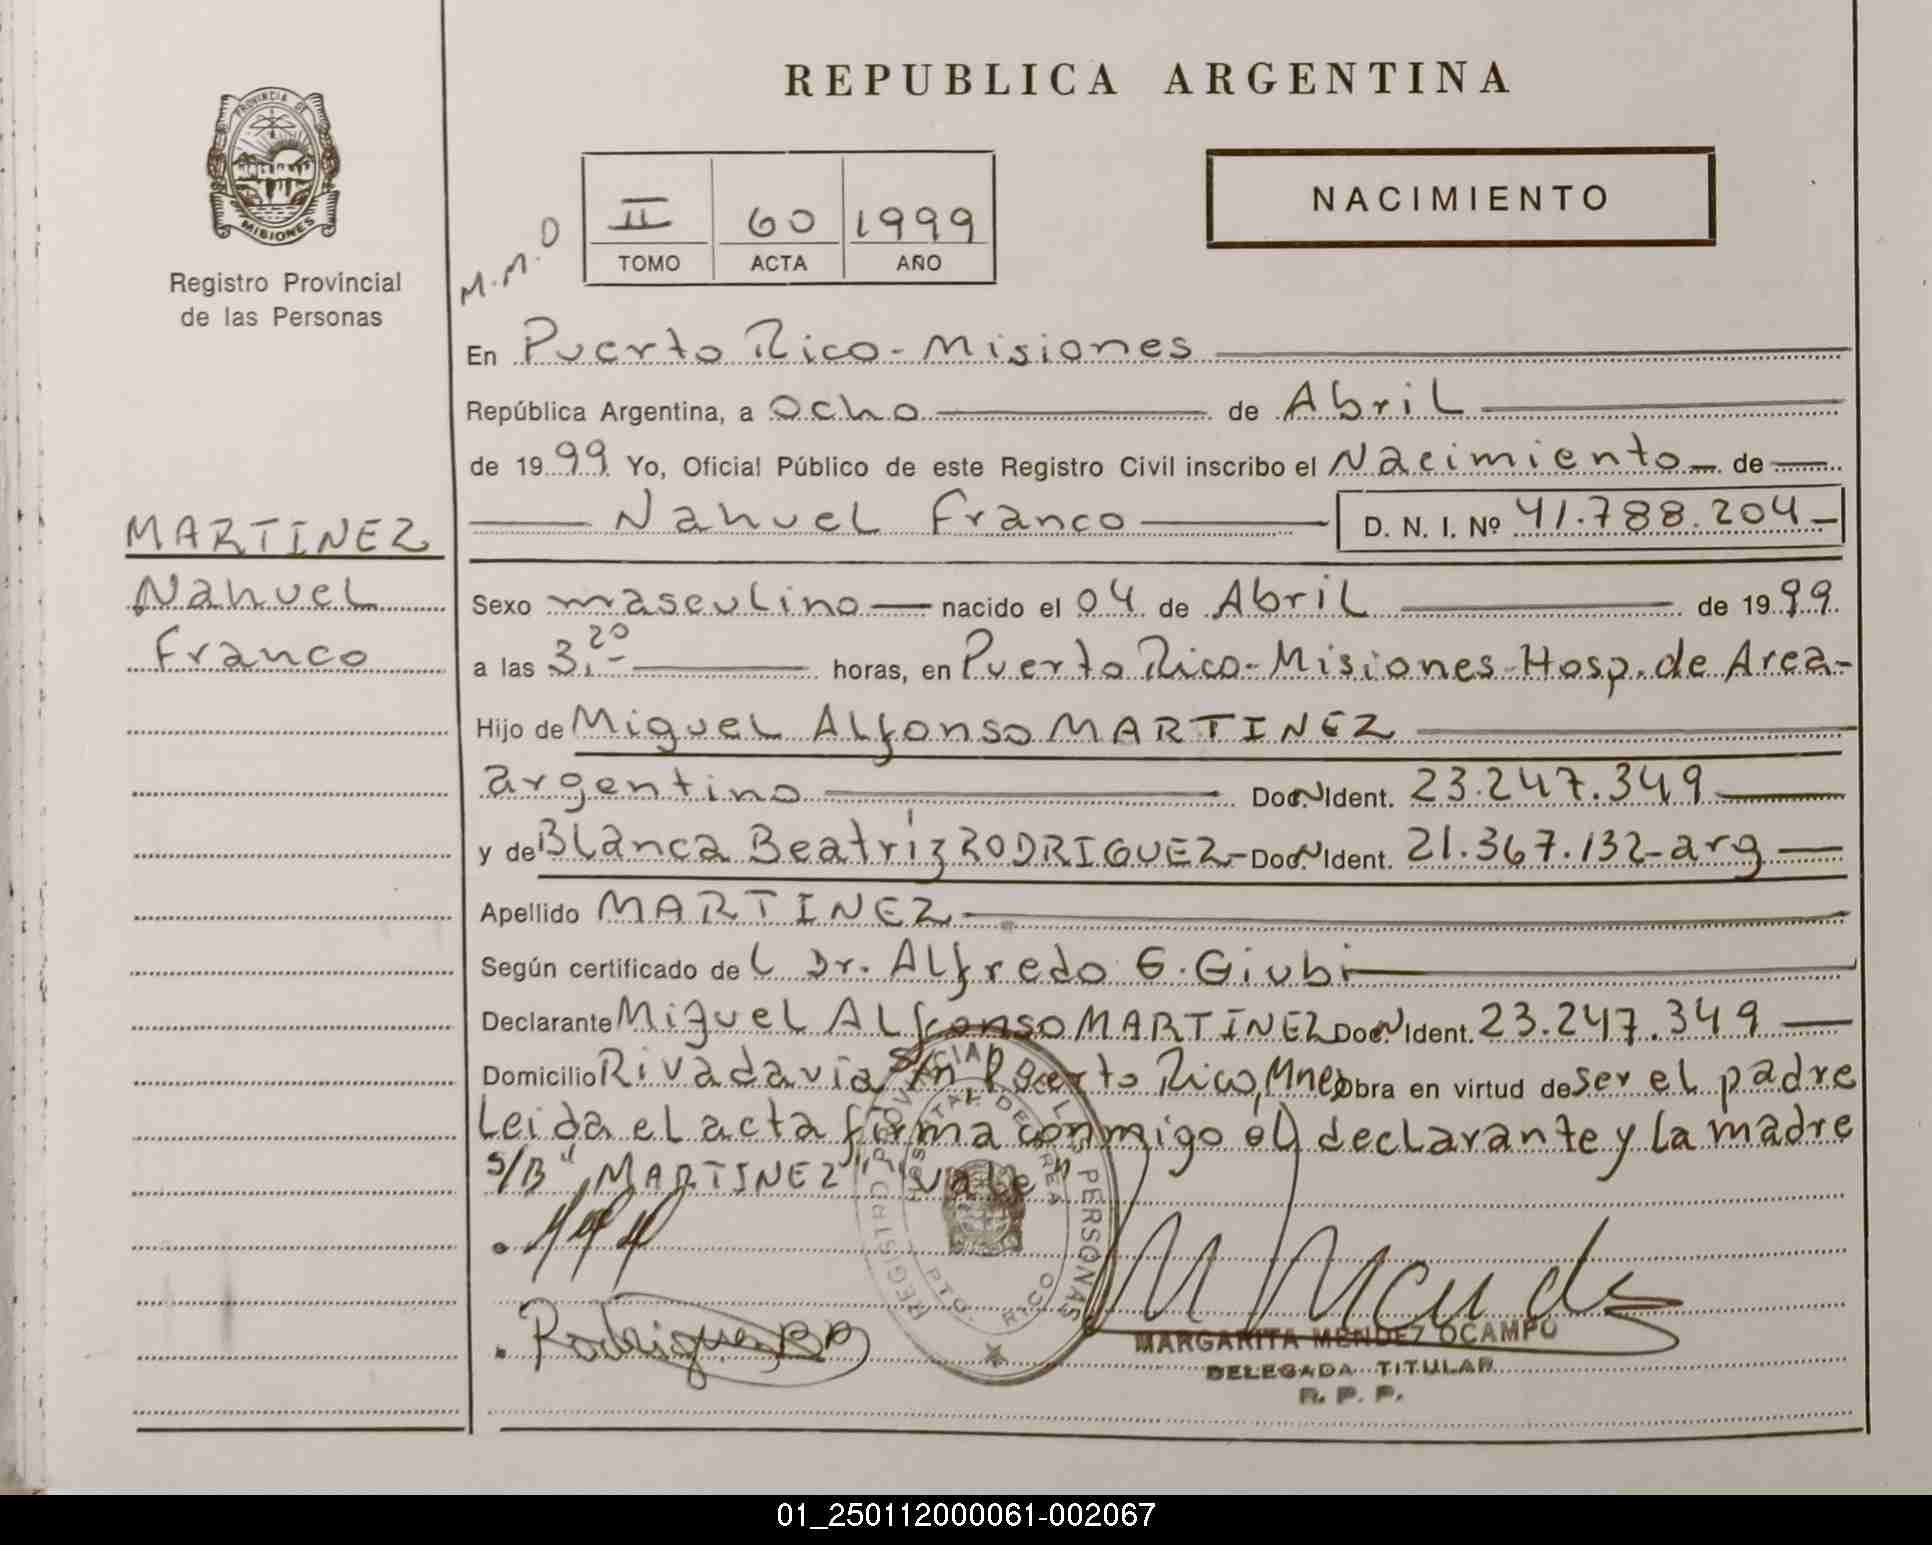 REPUBLICA ARGENTINA
PROVINCIA DE
MISIONES
Registro Provincial
de las Personas
II 60 1999
TOMO ACTA AÑO
NACIMIENTO
M.M.O
En Puerto Rico - Misiones
República Argentina, a ocho de Abril
de 1999 Yo, Oficial Público de este Registro Civil inscribo el Nacimiento de
Nahuel Franco D. N. I. Nº 41.788.204
MARTINEZ
Nahuel
Franco
Sexo masculino nacido el 04 de Abril de 1999
a las 3,20 horas, en Puerto Rico - Misiones - Hosp. de Area -
Hijo de Miguel Alfonso MARTINEZ
argentino Doc. N Ident. 23.247.349
y de Blanca Beatriz RODRIGUEZ - Doc. N Ident. 21.367.132 - arg
Apellido MARTINEZ
Según certificado del Dr. Alfredo G. Giubi
Declarante Miguel Alfonso MARTINEZ Doc. N Ident. 23.247.349
Domicilio Rivadavia s/n Puerto Rico, Mnes Obra en virtud de ser el padre
Leida el acta firma conmigo el declarante y la madre
s/B "MARTINEZ" "Vale"
Rodriguez BB
M Mendez
MARGARITA MENDEZ OCAMPO
DELEGADA TITULAR
R. P. P.
REGISTRO PROVINCIAL PERSONAS
HOSPITAL DE AREA
PTO. RICO
01_250112000061-002067